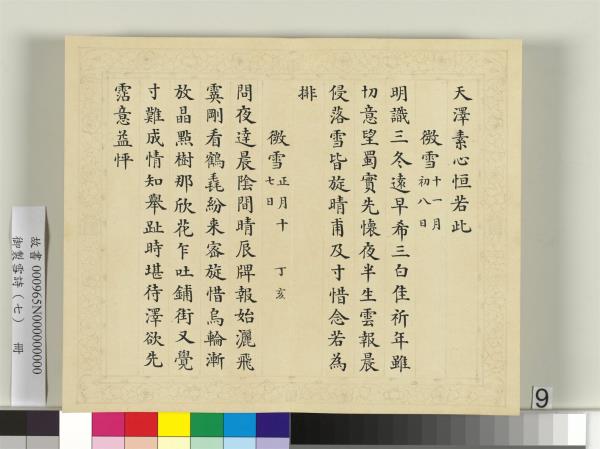 天澤素心恒若此
微雪 十一月
初八日
明識三冬遠早希三白佳祈年雖
切意望蜀實先懷夜半生雲報晨
侵落雪皆旋晴甫及寸惜念若為
排
微雪 正月十
七日
丁亥
問夜達晨陰間晴辰牌報始灑飛
霙剛看鶴毳紛來密旋惜烏輪漸
放晶點樹那欣花乍吐鋪街又覺
寸難成情知舉趾時堪待澤欲先
霑意益怦
故書 000965N000000000
御製雪詩（七） 冊
9